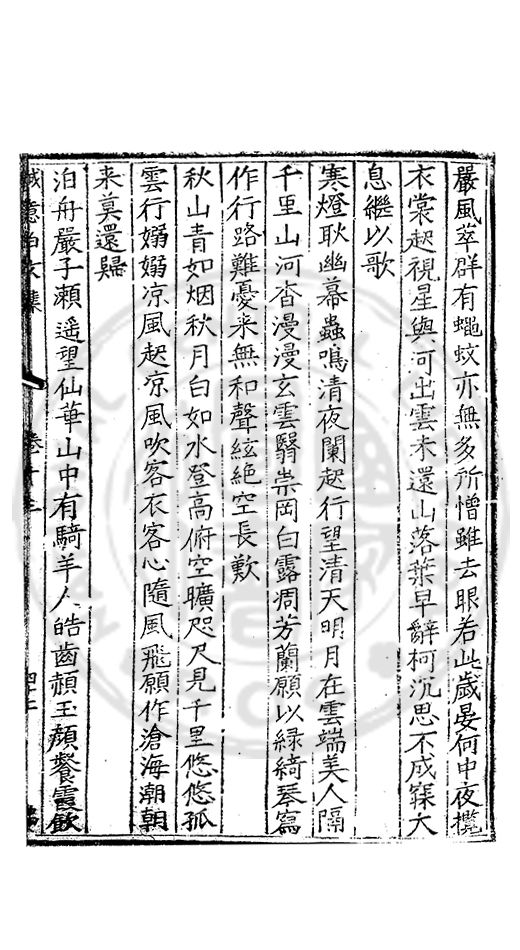 嚴風萃群有蠅蚊亦無多所憎雖去眼若此歲晏何中夜攬
衣裳起視星與河出雲未還山落葉早辭柯沉思不成寐大
息繼以歌
寒燈耿幽幕蟲鳴清夜闌起行望清天明月在雲端美人隔
千里山河杳漫漫玄雲翳崇岡白露凋芳蘭願以綠綺琴寫
作行路難憂来無和聲絃絶空長歎
秋山青如烟秋月白如水登高俯空曠咫尺見千里悠悠孤
雲行嫋嫋凉風起凉風吹客衣客心隨風飛願作滄海潮朝
来莫還歸
泊舟嚴子瀬遥望仙華山中有騎羊人皓齒頳玉顔餐霞飲
誠意伯文集 卷十三